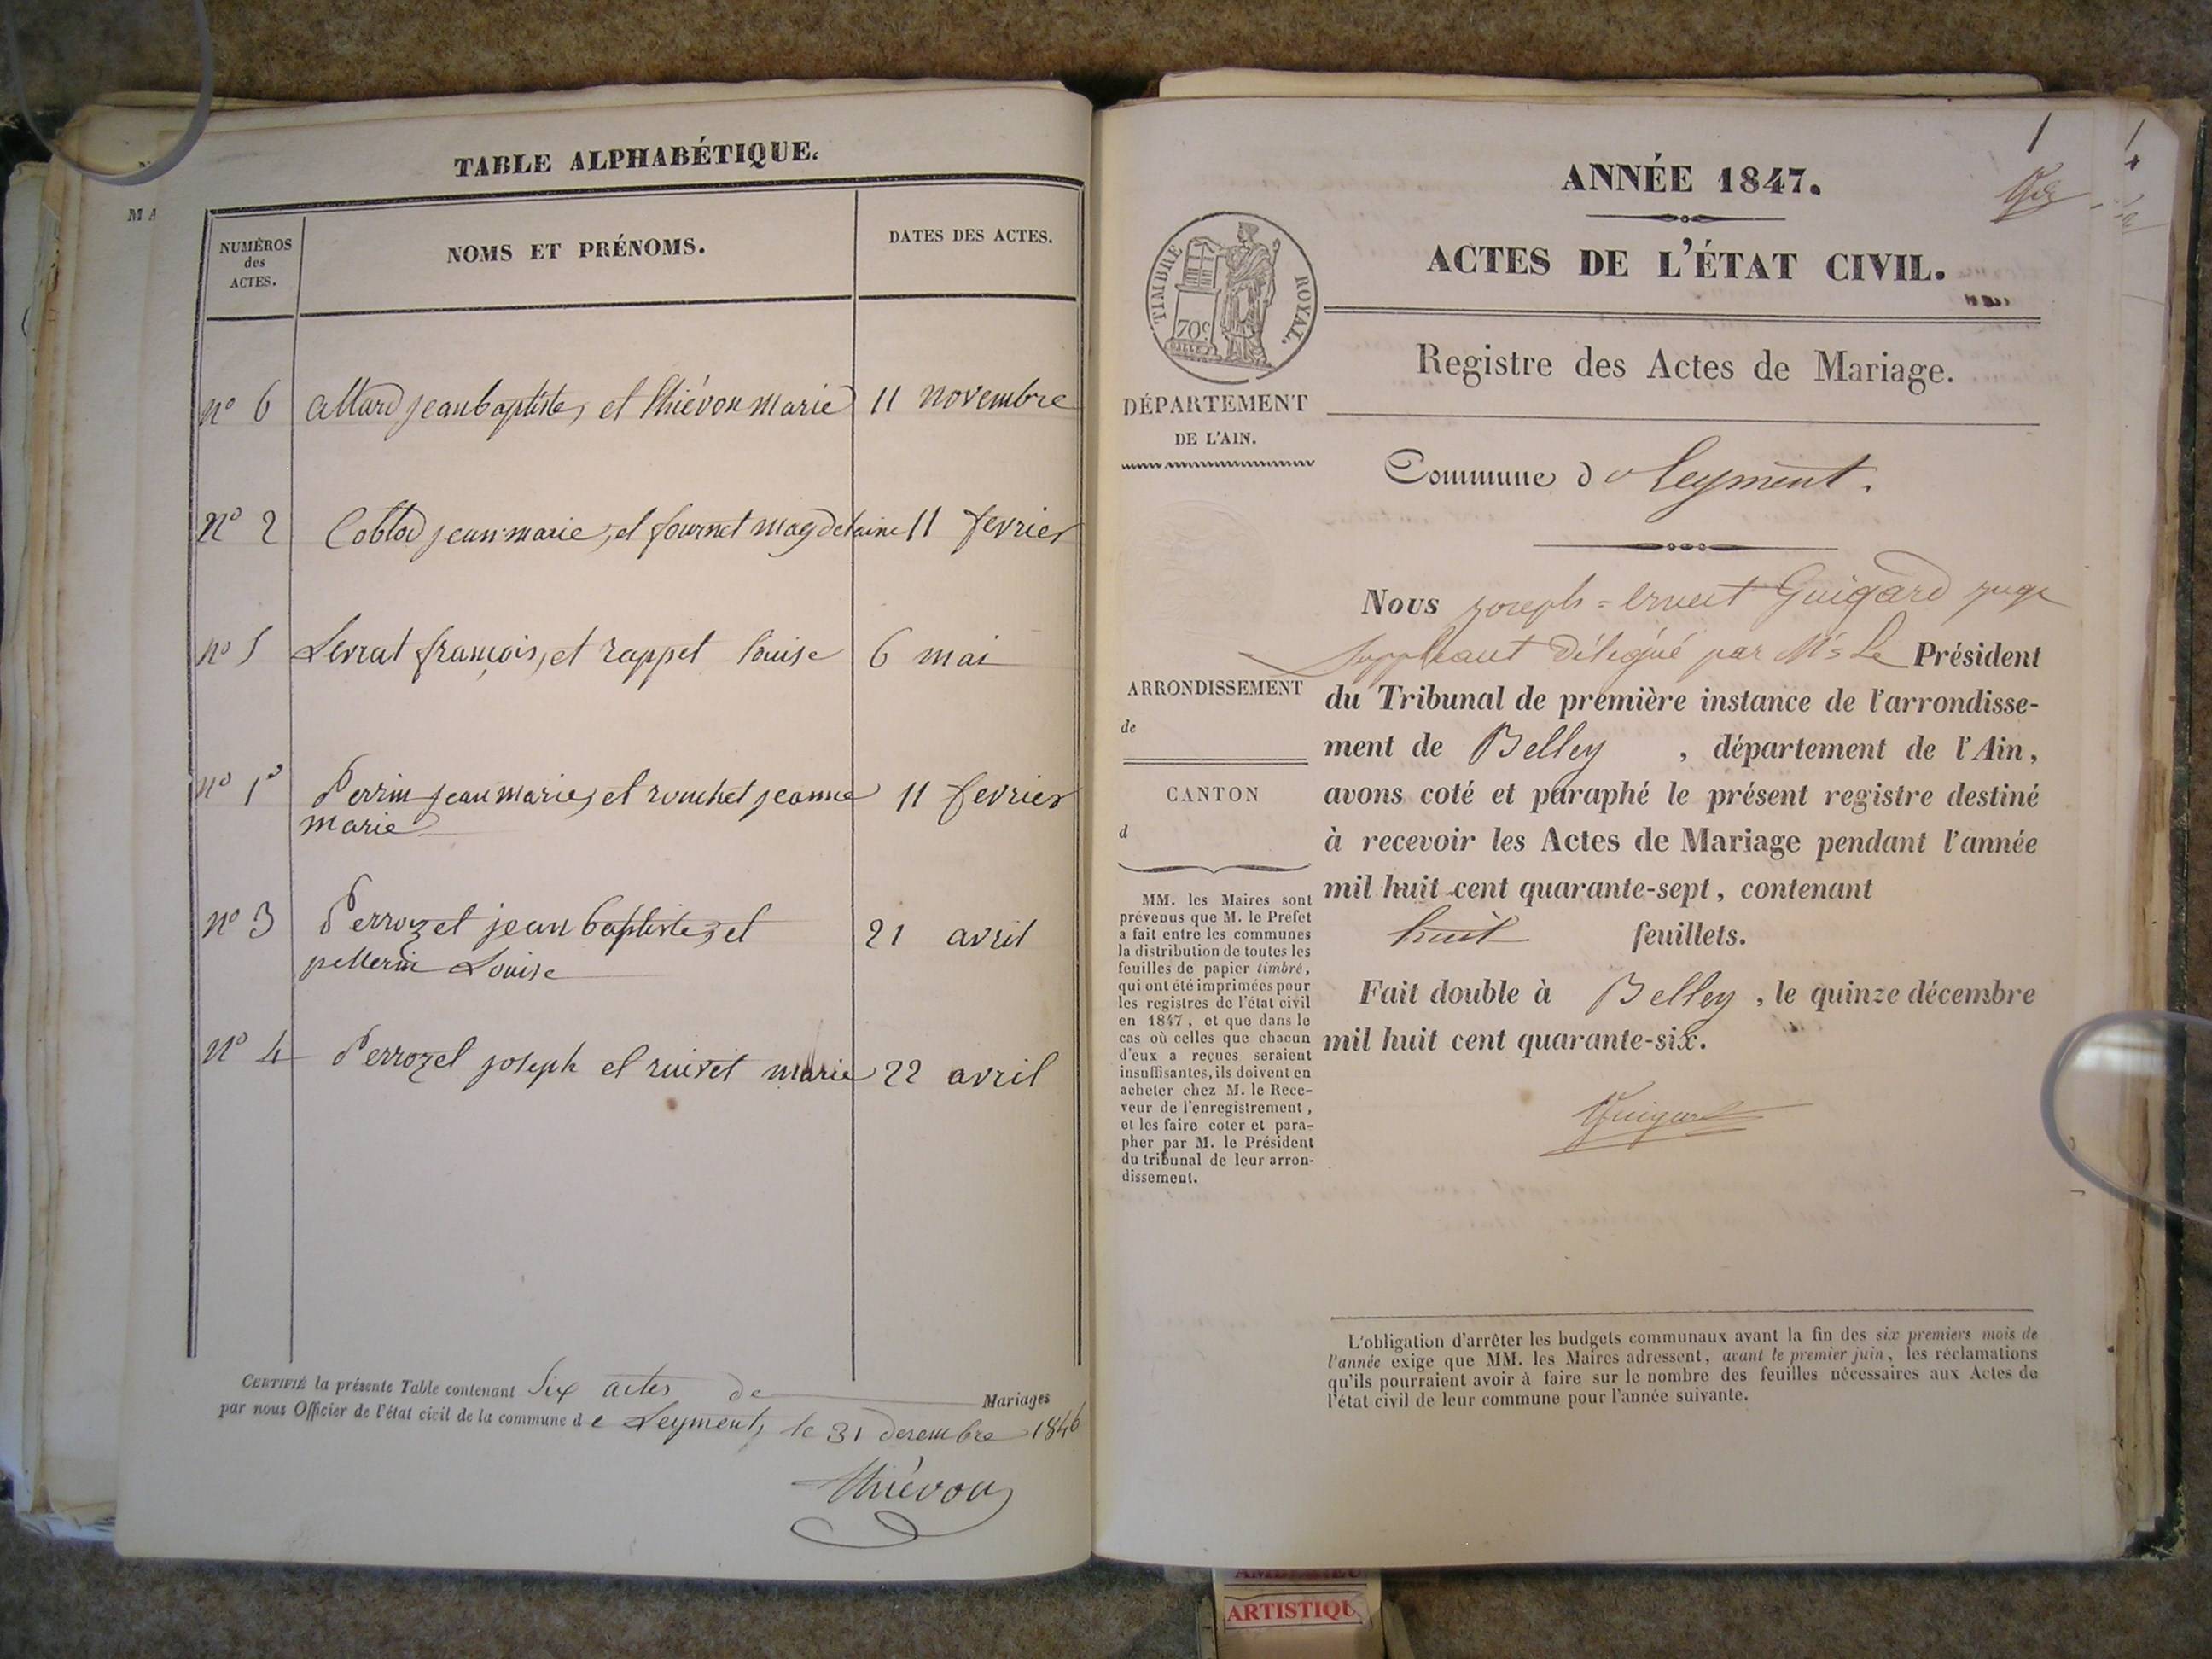 TABLE ALPHABÉTIQUE.
NUMÉROS
des
ACTES.
NOMS ET PRÉNOMS.
DATES DES ACTES.
nº 6 allard jean baptiste, et thiévon marie 11 novembre
nº 2 Coblod jean marie, et fournet magdelaine 11 fevrier
nº 5 Levrat françois, et rappet louise 6 mai
nº 1º Perrin jean marie, et ronchet jeanne 11 fevrier
marie
nº 3 Perrozet jean baptiste, et 21 avril
pellerin Louise
nº 4 Perrozel joseph et ruivet marie 22 avril
CERTIFIÉ la présente Table contenant Six actes de Mariages
par nous Officier de l'état civil de la commune de Leyment, le 31 decembre 1846
Thiévon
1
ANNÉE 1847.
ACTES DE L'ÉTAT CIVIL.
TIMBRE ROYAL.
70c
Registre des Actes de Mariage.
DÉPARTEMENT
DE L'AIN.
Commune de Leyment.
Nous joseph = ernest Guigard juge
suppléant délégué par Mr Le Président
du Tribunal de première instance de l'arrondisse-
ment de Belley , département de l'Ain,
avons coté et paraphé le présent registre destiné
à recevoir les Actes de Mariage pendant l'année
mil huit cent quarante-sept, contenant
huit feuillets.
Fait double à Belley , le quinze décembre
mil huit cent quarante-six.
Guigard
ARRONDISSEMENT
de
CANTON
d
MM. les Maires sont
prévenus que M. le Préfet
a fait entre les communes
la distribution de toutes les
feuilles de papier timbré,
qui ont été imprimées pour
les registres de l'état civil
en 1847, et que dans le
cas où celles que chacun
d'eux a reçues seraient
insuffisantes, ils doivent en
acheter chez M. le Rece-
veur de l'enregistrement,
et les faire coter et para-
pher par M. le Président
du tribunal de leur arron-
dissement.
L'obligation d'arrêter les budgets communaux avant la fin des six premiers mois de
l'année exige que MM. les Maires adressent, avant le premier juin, les réclamations
qu'ils pourraient avoir à faire sur le nombre des feuilles nécessaires aux Actes de
l'état civil de leur commune pour l'année suivante.
ARTISTIQU